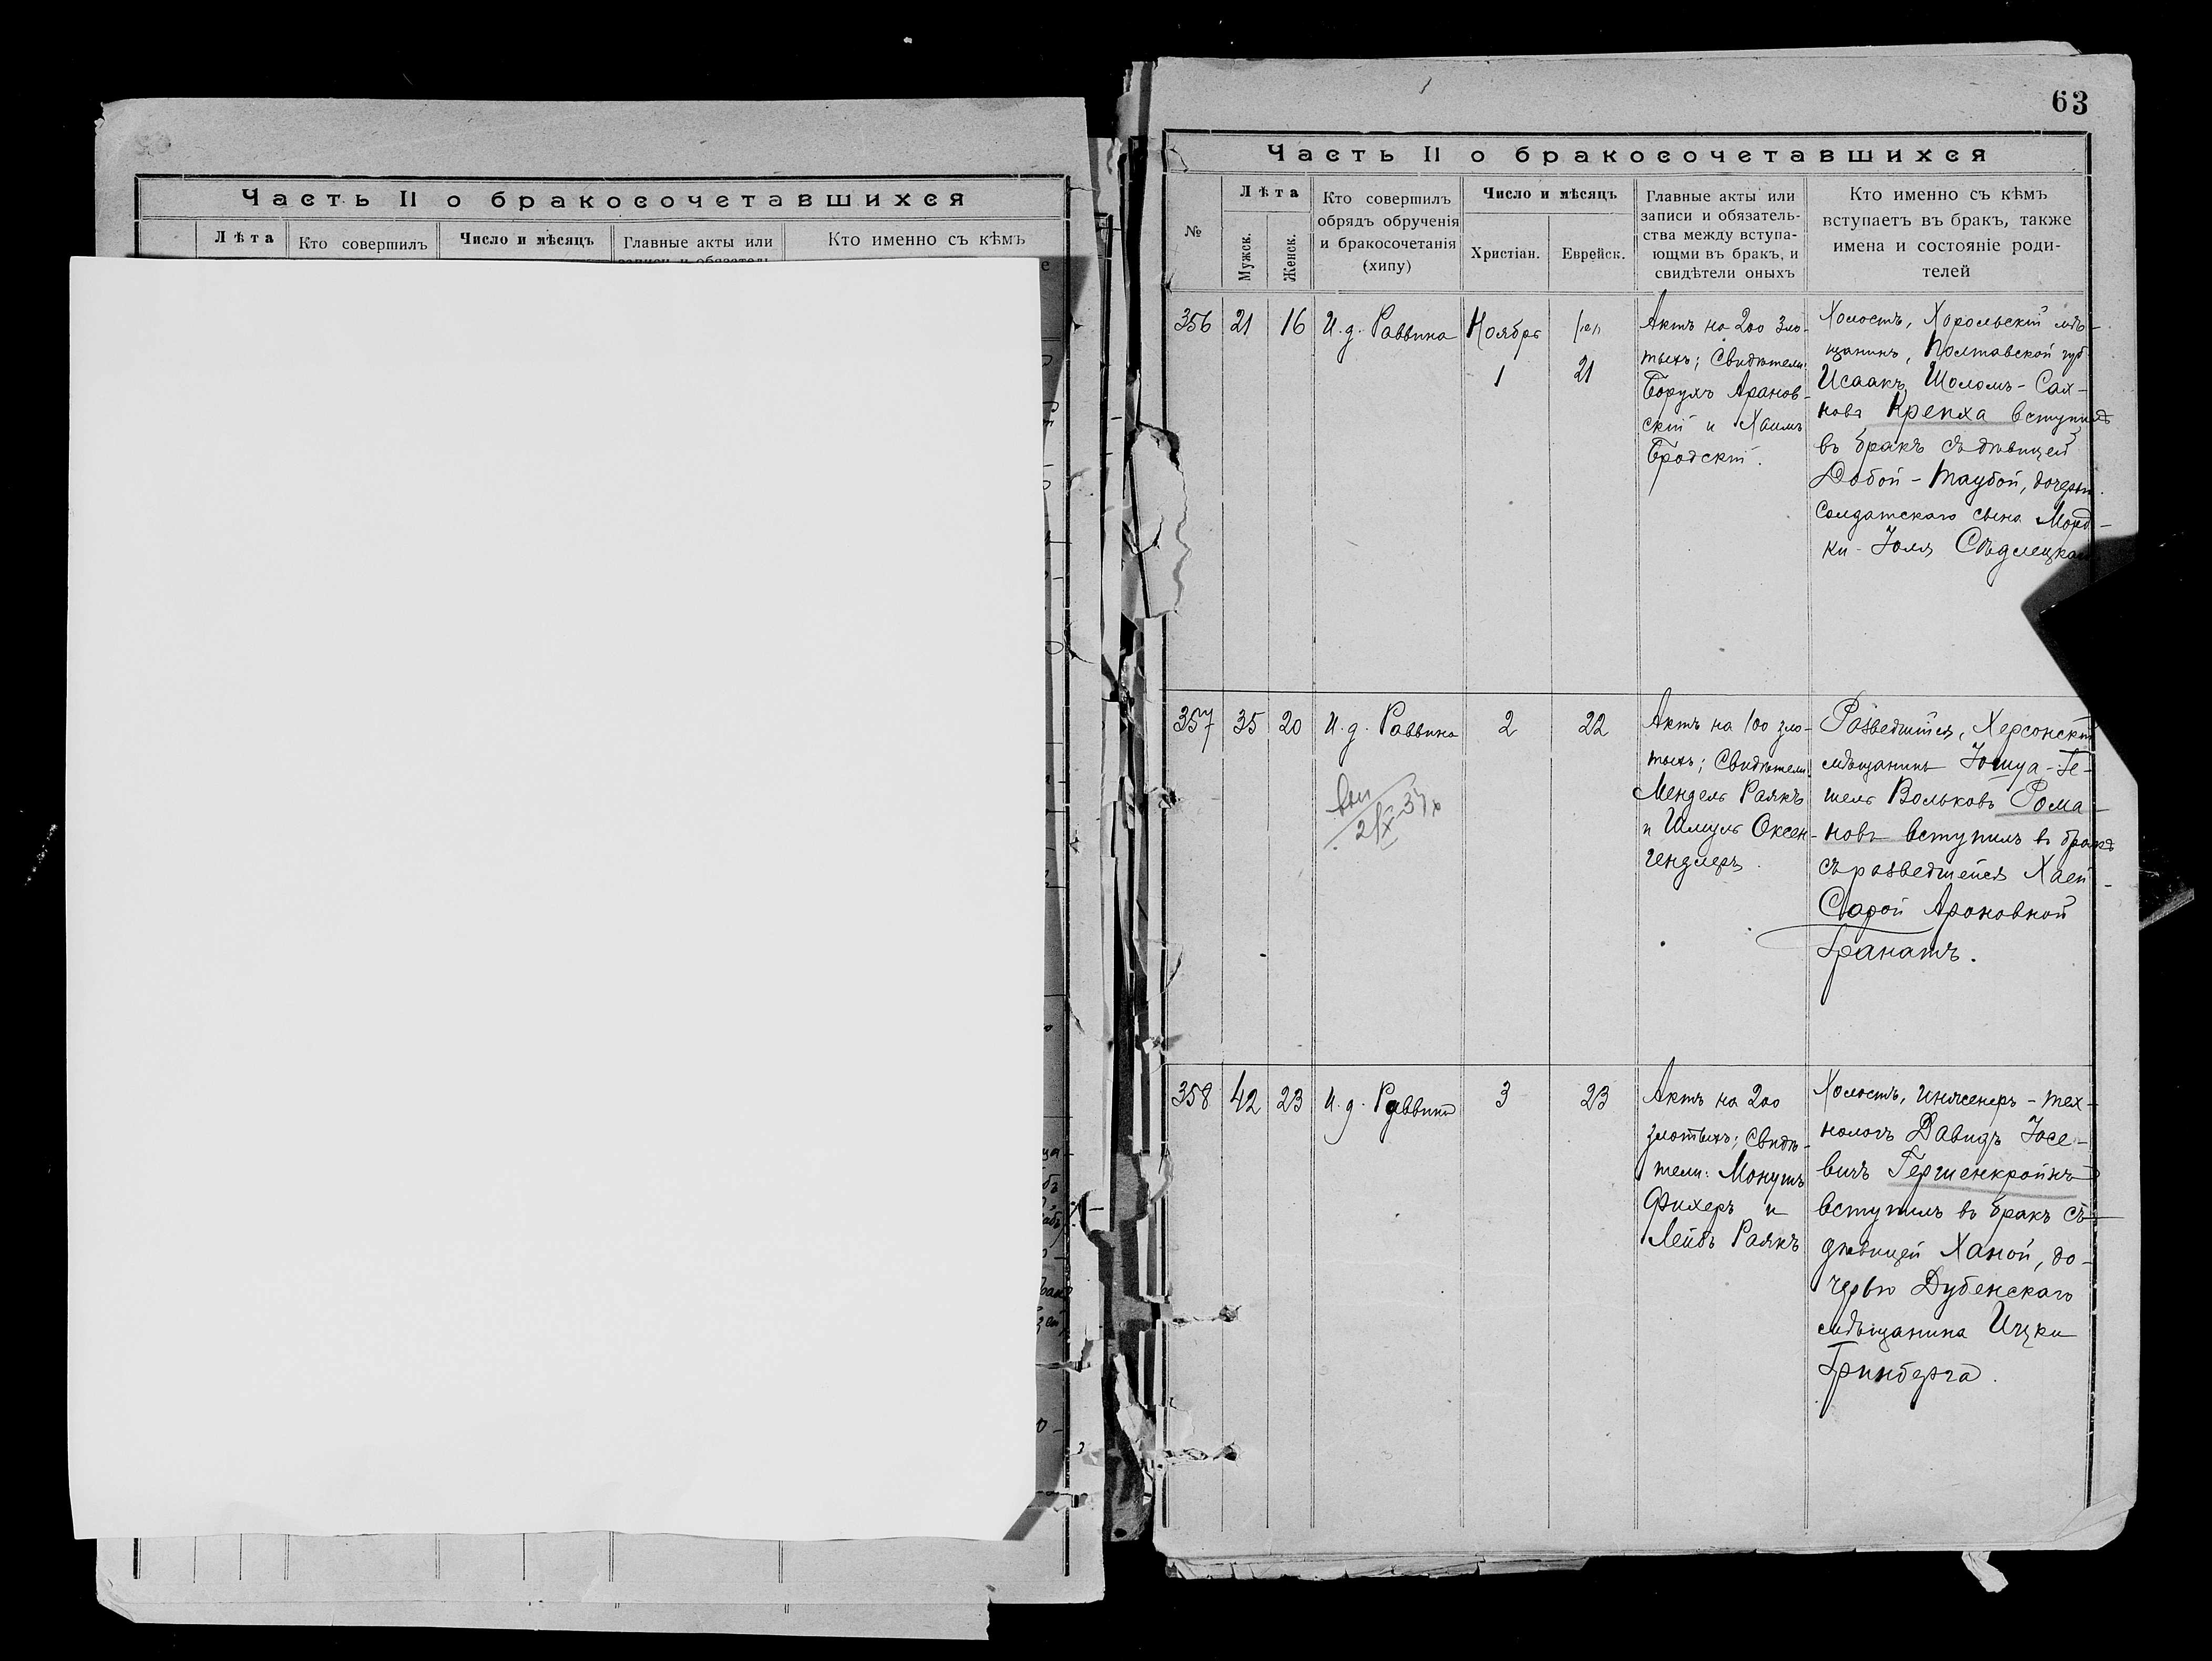 Часть II о бракосочетавшихся
Лѣта
Кто совершилъ
Число и мѣсяцъ
Главные акты или
Кто именно съ кѣмъ
63
Часть II о бракосочетавшихся
№
Лѣта
Мужск.
Женск.
Кто совершилъ
обрядъ обрученія
и бракосочетанія
(хипу)
Число и мѣсяцъ
Христіан.
Еврейск.
Главные акты или
записи и обязатель-
ства между вступа-
ющми въ бракъ, и
свидѣтели оныхъ
Кто именно съ кѣмъ
вступаетъ въ бракъ, также
имена и состояніе роди-
телей
356
21
16
И. д. Раввина
Ноябрь
1
21
Актъ на 200 зло-
тыхъ; Свидѣтели:
Борухъ Аранов-
скій и Хаимъ
Бродскій.
Холостъ, Хорольскій мѣ-
щанинъ, Полтавской губ
Исаакъ Шоломъ-Сах-
новъ Крепха вступилъ
въ бракъ съ дѣвицей
Добой-Таубой, дочерью
солдатскаго сынаМорд-
ки-Іоля Сѣдлецкаго
357
35
20
И. д. Раввина
2
22
Актъ на 100 зло-
тыхъ; Свидѣтели:
Мендель Раякъ
и Шмуль Оксен-
гендлеръ.
Разведшійся, Херсонскій
мѣщанинъ Іошуа-Ге-
шель Вольковъ Рома-
новъ вступилъ въ бракъ
съ разведшейся Хаей-
Сарой Ароновной
Гранатъ.
358
42
23
И. д. Раввина
3
23
Актъ на 200
злотыхъ; Свидѣ-
тели: Монушъ
Фихеръ и
Лейбъ Раякъ
Холостъ, инженеръ-тех-
нологъ Давидъ Іосе-
вичъ Гершенкройнъ
вступилъ въ бракъ съ
дѣвицей Ханой, до-
черью Дубенскаго
мѣщанина Ицки
Гринберга.